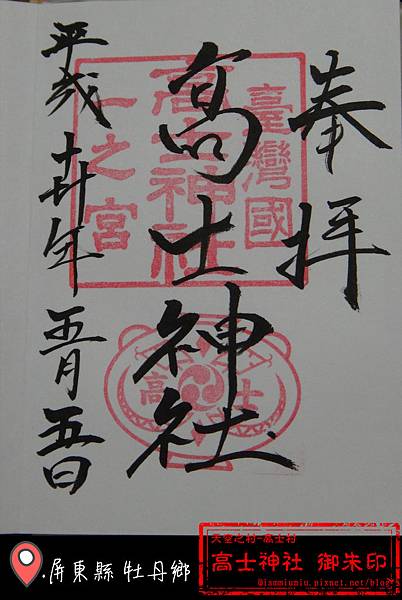 奉拝
高士神社
平成卅年五月五日
臺灣國
高士神社
一之宮
高士
.屏東縣 牡丹鄉
天空之村-高士村
高士神社 御朱印